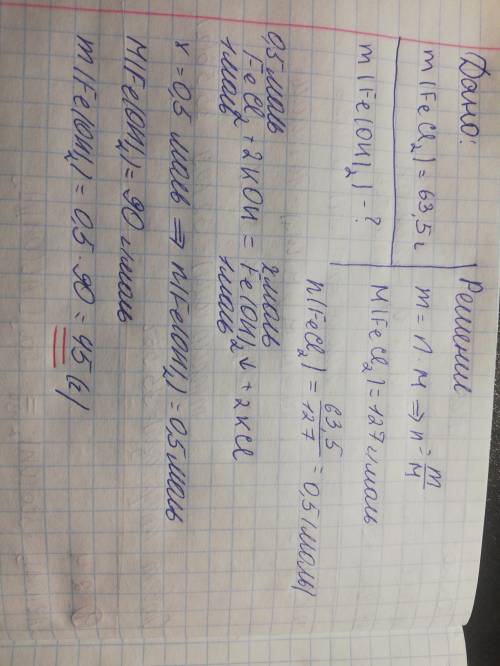 Дано:
m(FeCl₂) = 63,5 г
m(Fe(OH)₂) - ?
Решение
m = n · M ⇒ n = m/M
M(FeCl₂) = 127 г/моль
n(FeCl₂) = 63,5/127 = 0,5 (моль)
0,5 моль x моль
FeCl₂ + 2KOH = Fe(OH)₂↓ + 2KCl
1моль 1моль
x = 0,5 моль ⇒ n(Fe(OH)₂) = 0,5 моль
M(Fe(OH)₂) = 90 г/моль
m(Fe(OH)₂) = 0,5 · 90 = 45 (г)